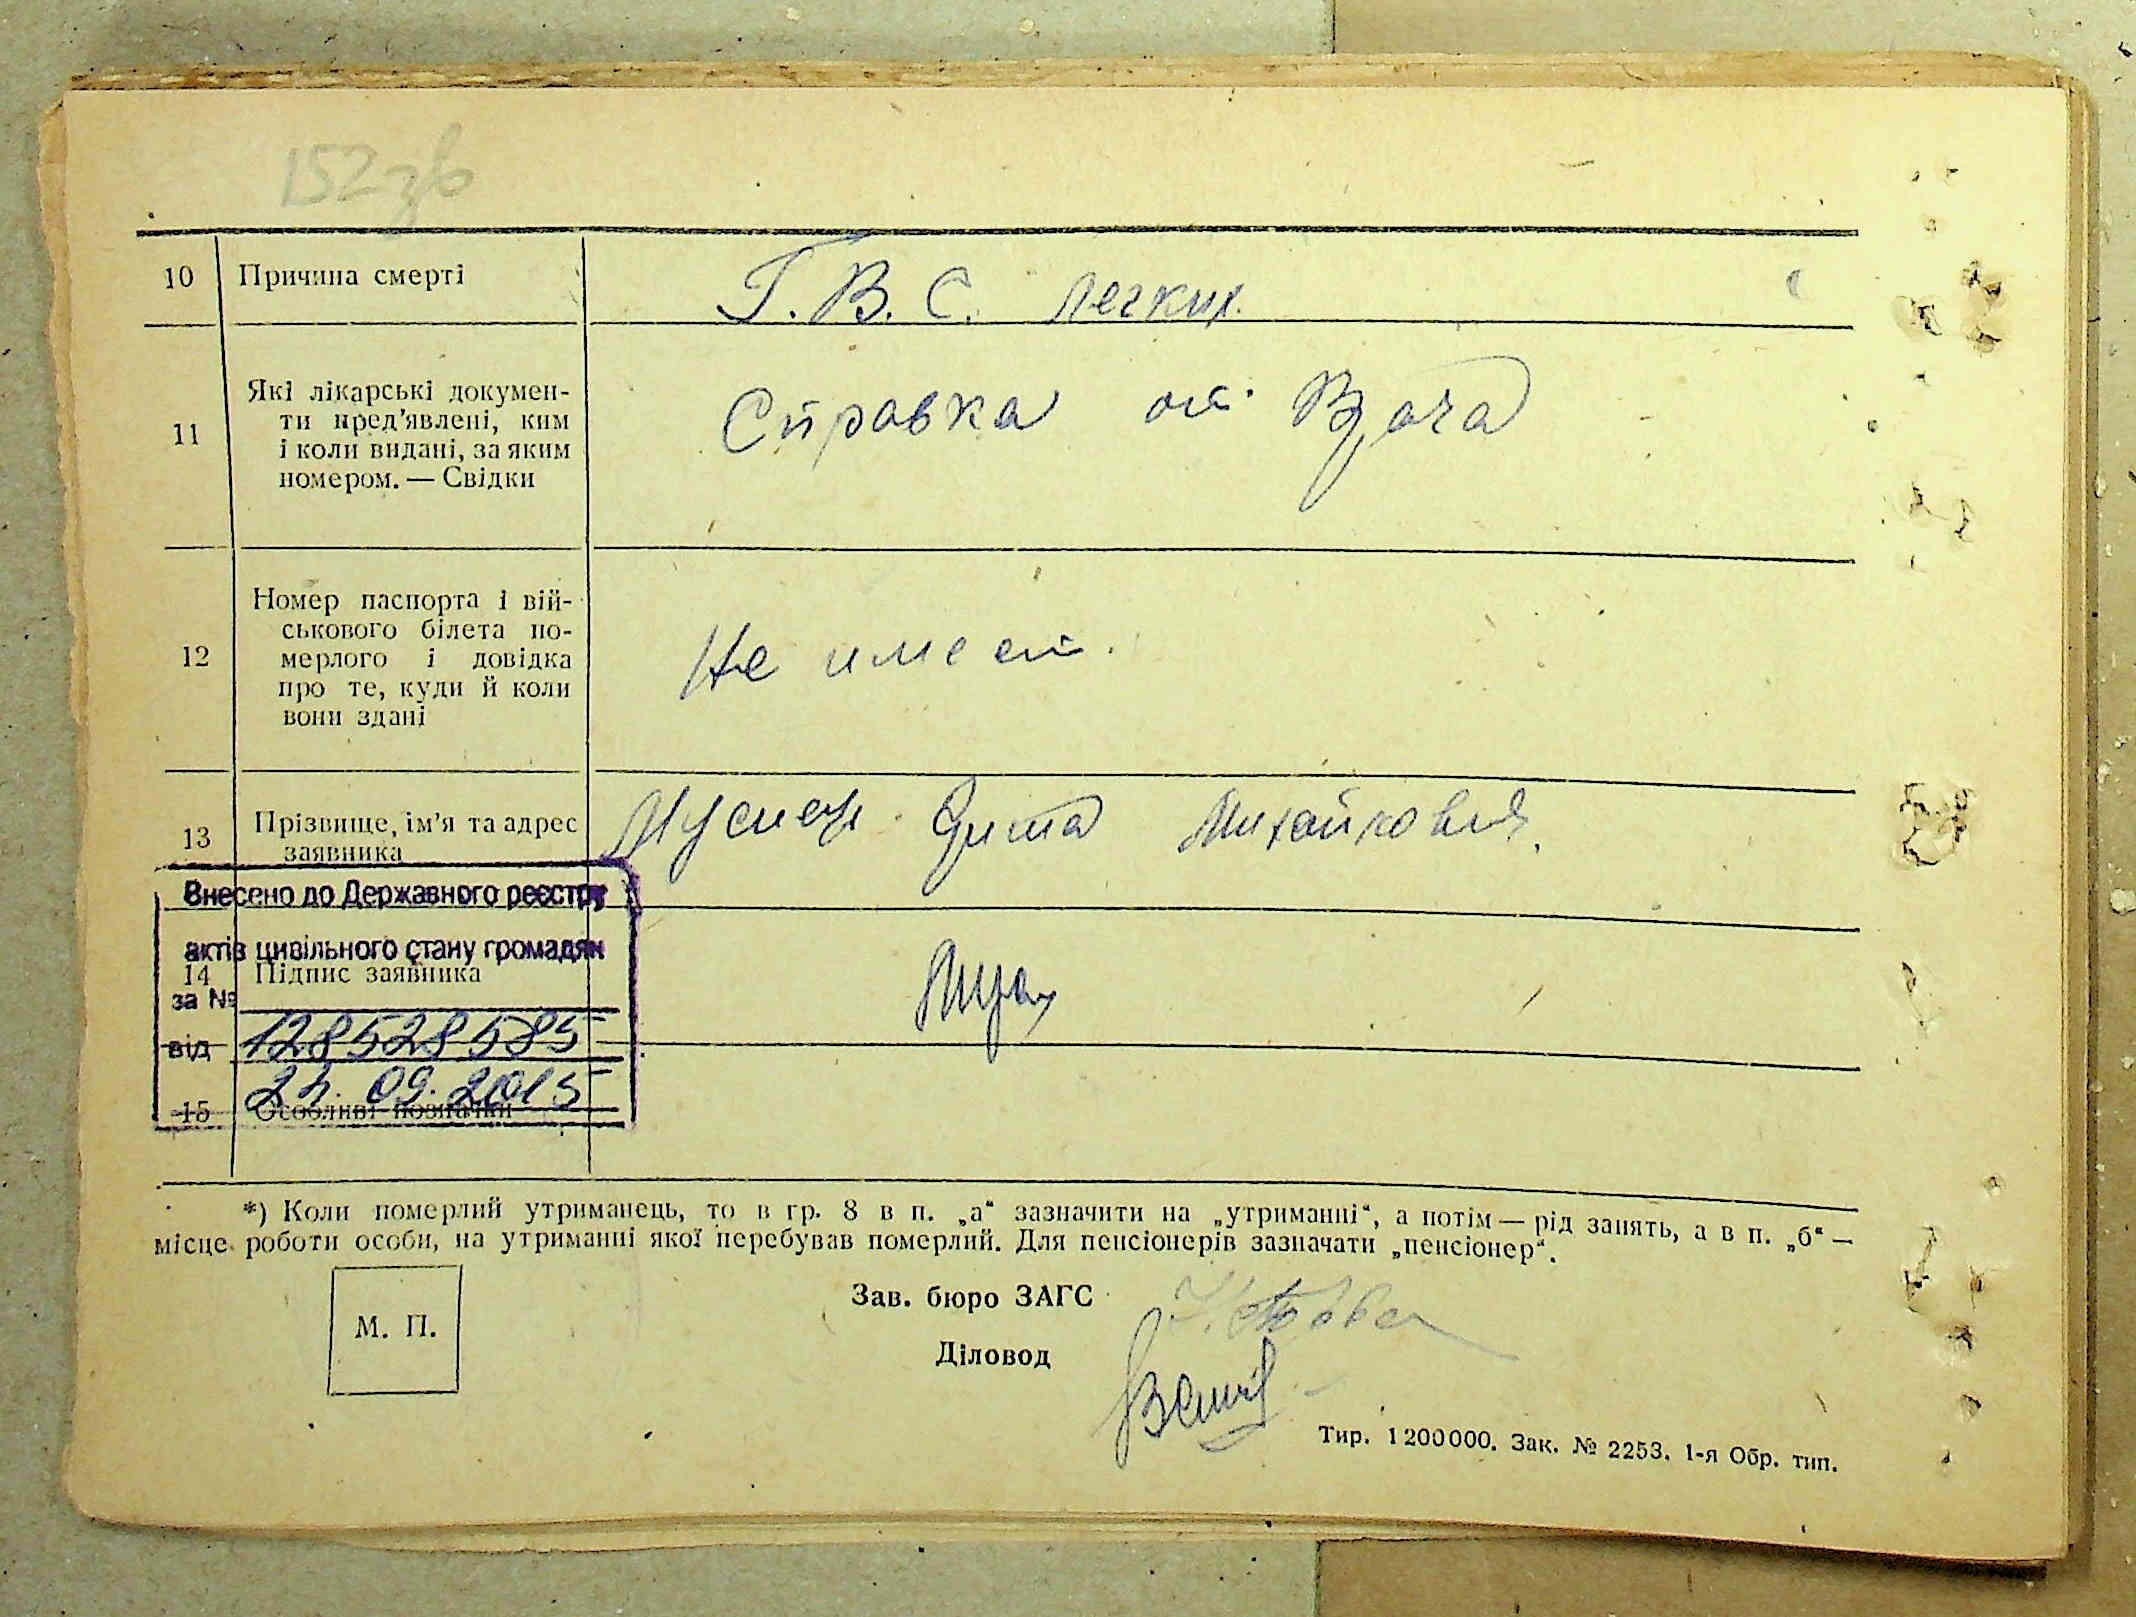 152зв
10 Причина смерті Т. В. С. легких.
11 Які лікарські докумен-
ти пред'явлені, ким
і коли видані, за яким
номером. — Свідки
Справка от Врача
12 Номер паспорта і вій-
ськового білета по-
мерлого і довідка
про те, куди й коли
вони здані
Не имеет.
13 Прізвище, ім'я та адрес
заявника
Михайловна.
Внесено до Державного реєстру
актів цивільного стану громадян
14 Підпис заявника
за №
від 128528585
24.09.2015
15 Особливі позначки
*) Коли померлий утриманець, то в гр. 8 в п. „а“ зазначити на „утриманні“, а потім — рід занять, а в п. „б“ —
місце роботи особи, на утриманні якої перебував померлий. Для пенсіонерів зазначати „пенсіонер“.
М. П.
Зав. бюро ЗАГС
Діловод
Тир. 1200000. Зак. № 2253. 1-я Обр. тип.